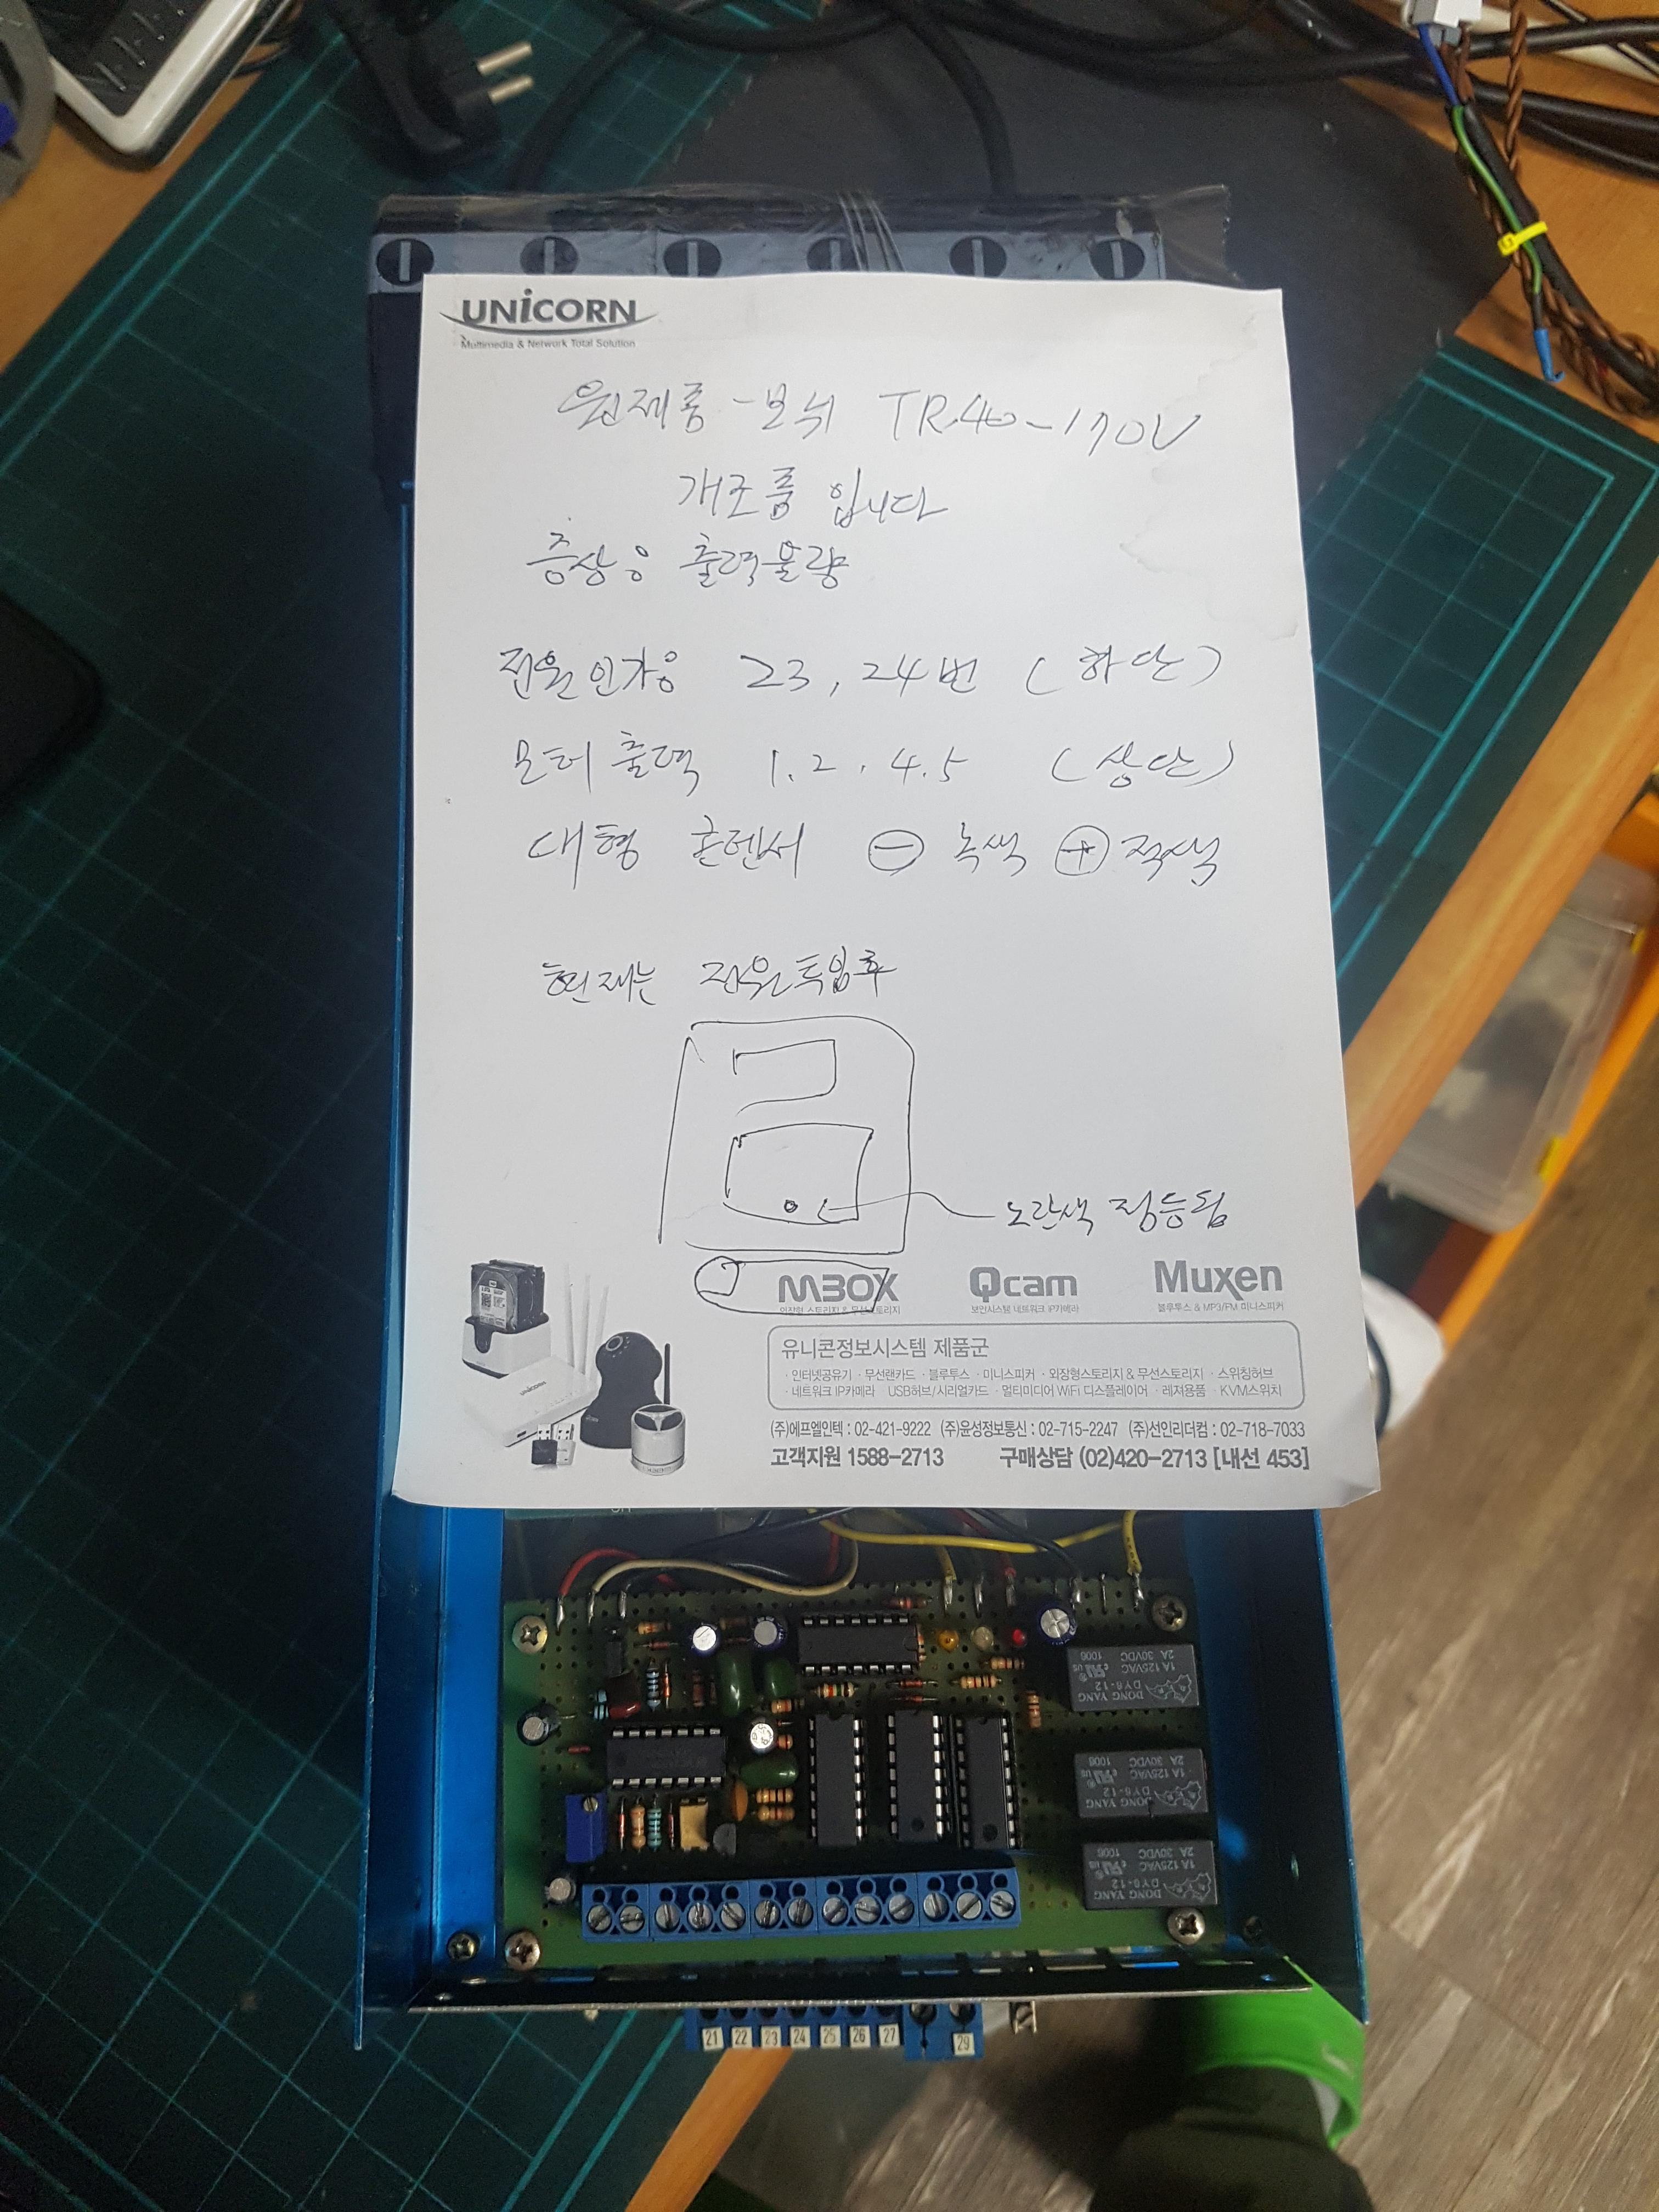 UNiCORN
Multimedia & Network Total Solution
원제품 - 보쉬 TR.40-170V
개조품 입니다
증상은 출력불량
전원인가은 23, 24번 (하단)
모터출력 1. 2. 4. 5 (상단)
대형 콘덴서 ⊖ 녹색 ⊕ 적색
현재는 전원투입후
노란색 점등됨
MBOX
외장형 스토리지 & 무선스토리지
Qcam
보안시스템 네트워크 IP카메라
Muxen
블루투스 & MP3/FM 미니스피커
유니콘정보시스템 제품군
· 인터넷공유기 · 무선랜카드 · 블루투스 · 미니스피커 · 외장형스토리지 & 무선스토리지 · 스위칭허브
· 네트워크 IP카메라 USB허브/시리얼카드 · 멀티미디어 WiFi 디스플레이어 · 레져용품 · KVM스위치
(주)에프엘인텍 : 02-421-9222 (주)윤성정보통신 : 02-715-2247 (주)선인리더컴 : 02-718-7033
고객지원 1588-2713 구매상담 (02)420-2713 [내선 453]
DONG YANG
DY6-12
1A 125VAC
2A 30VDC
1006
DONG YANG
DY6-12
1A 125VAC
2A 30VDC
1006
DONG YANG
DY6-12
1A 125VAC
2A 30VDC
1006
21 22 23 24 25 26 27 29